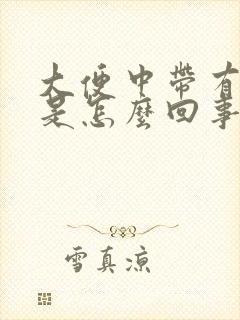 大便中帶有
是怎麼回事
雪真涼